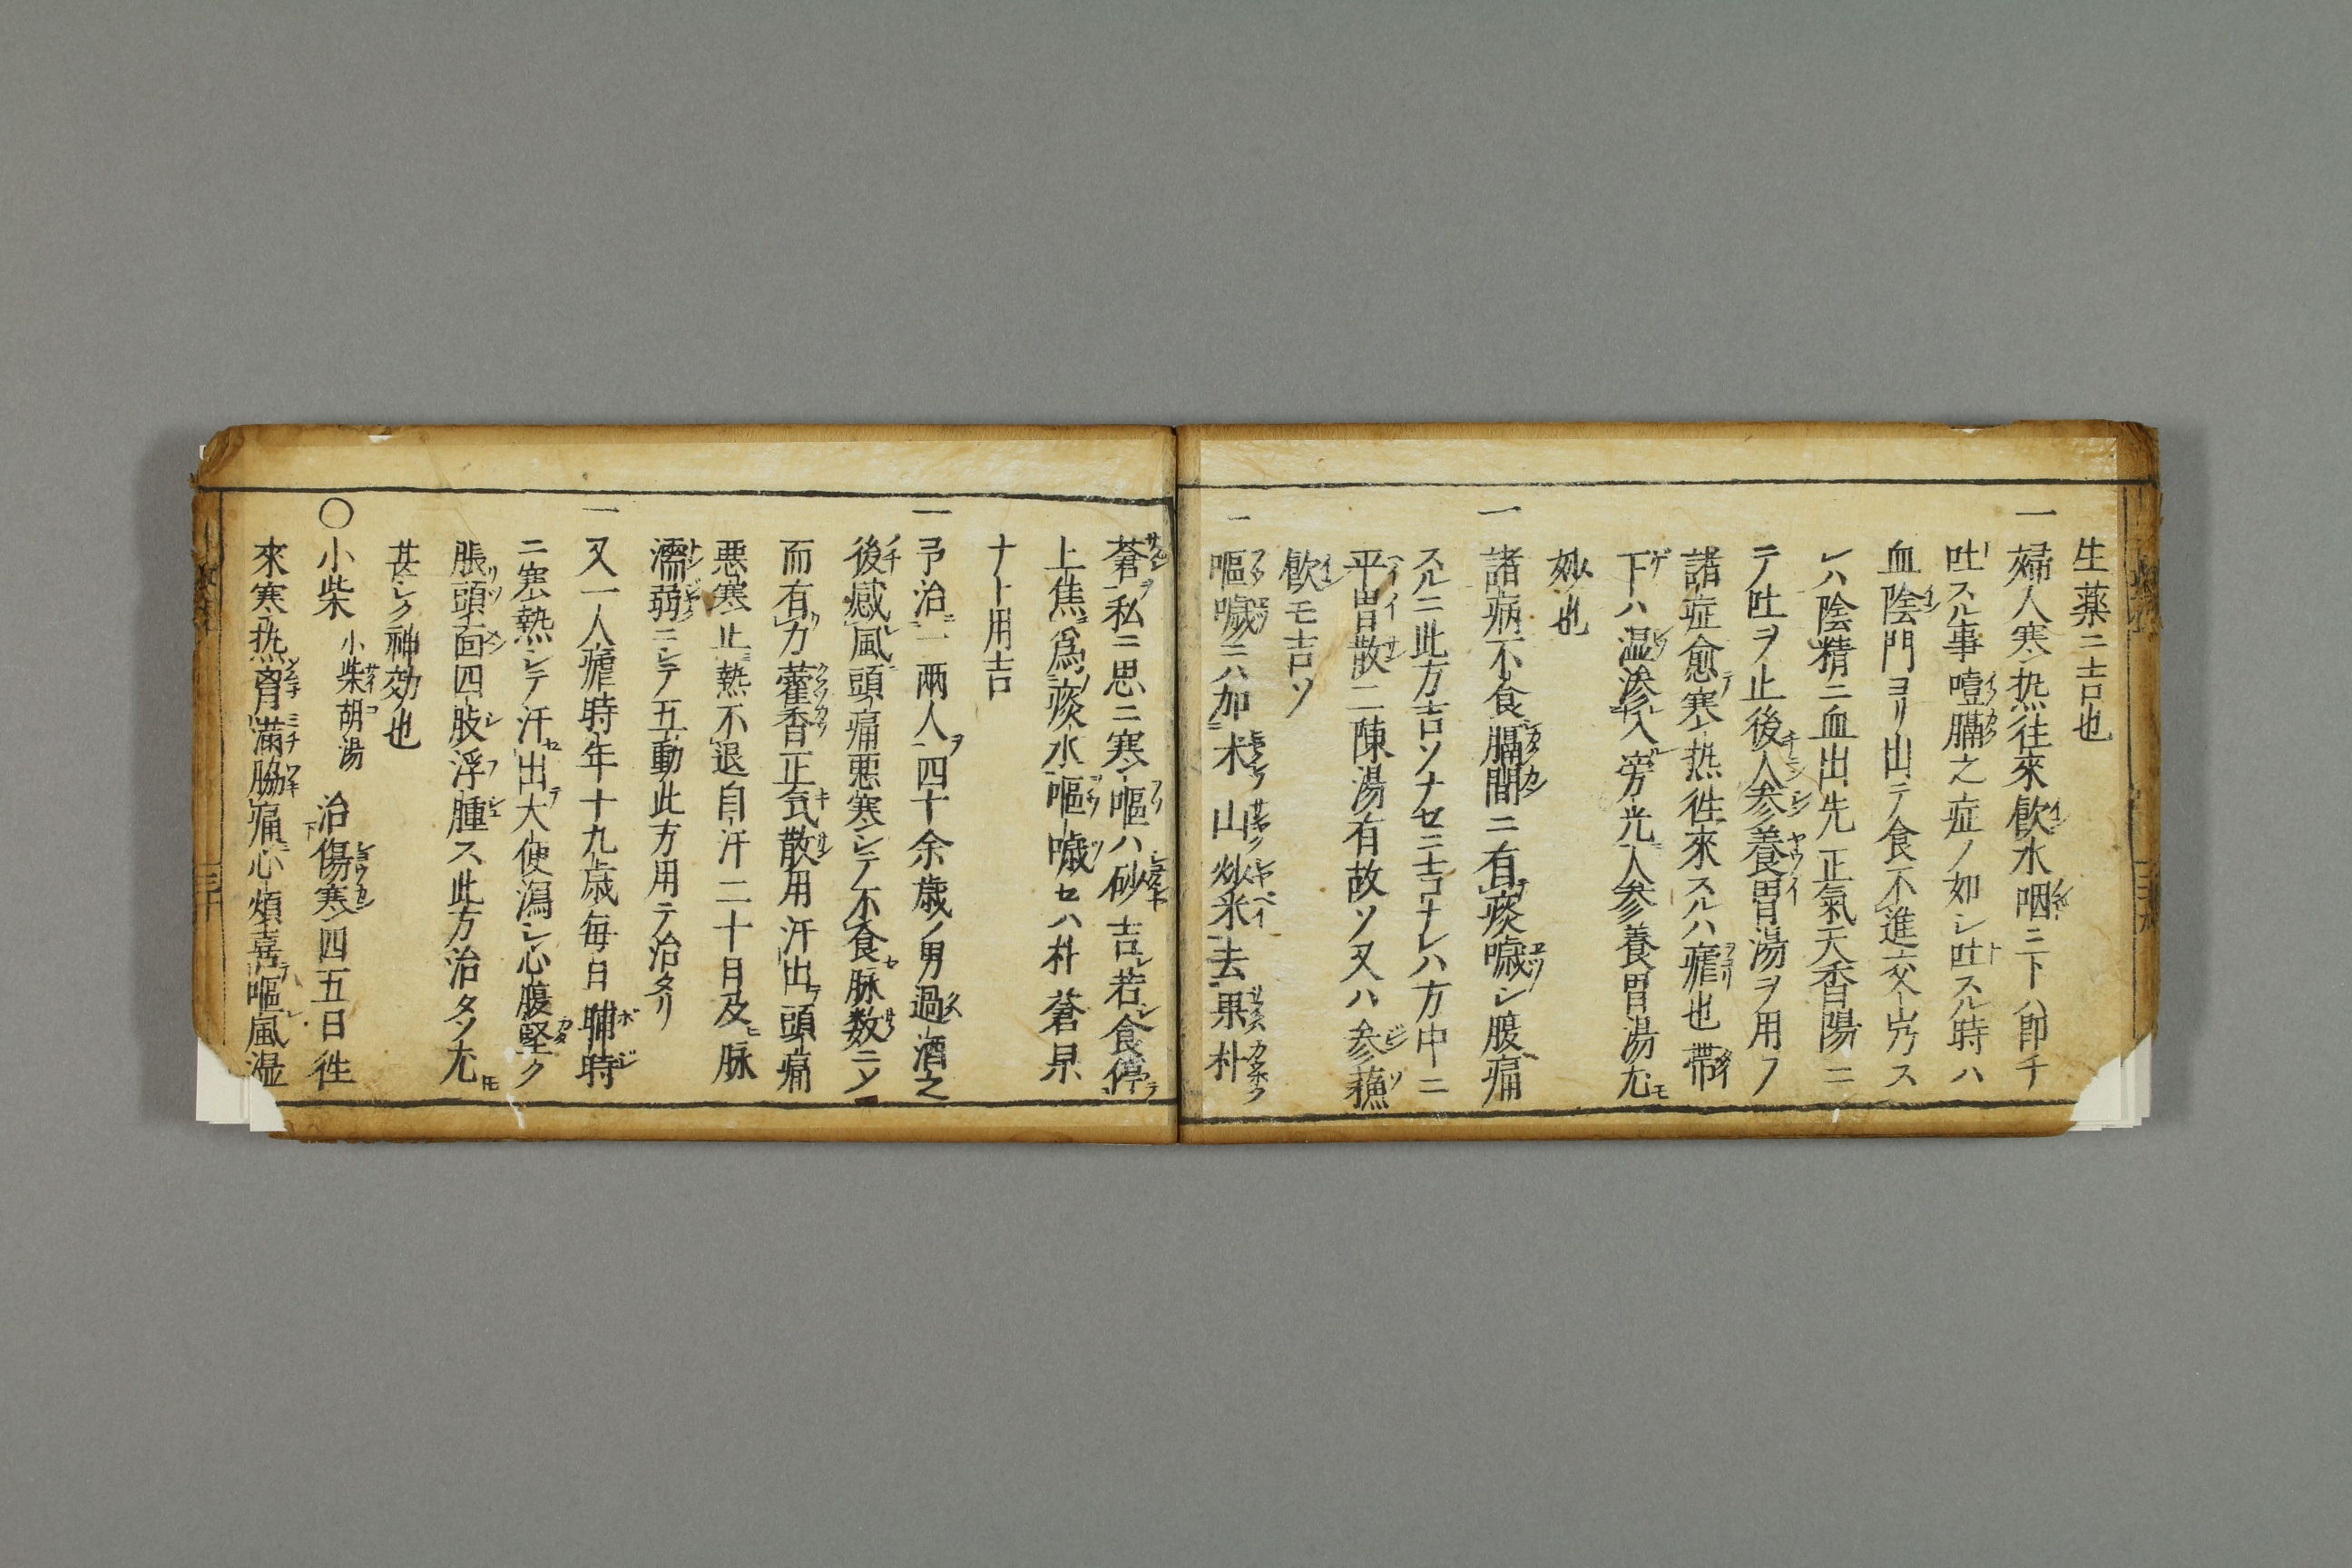 生薬ニ吉也
一 婦人寒热往來飲水咽ニ下ハ即チ
吐スル事噎膈之症ノ如シ吐スル時ハ
血陰門ヨリ出テ食不進交ス
レハ陰精ニ血出先正氣天香湯ニ
テ吐ヲ止後人参養胃湯ヲ用フ
諸症愈寒热徃來スルハ瘧也帶
下ハ湿滲入旁光人参養胃湯尤モ
妙也
一 諸病不食膈間ニ有痰噦シ腹痛
スルニ此方吉ソナセニ吉ナレハ方中ニ
平胃散二陳湯有故ソ又ハ参蘓
飲モ吉ソ
一 嘔噦ニハ加木山炒米去果朴
蒼私ニ思ニ寒嘔ハ砂吉若食停
上焦爲痰水嘔噦セハ朴蒼果
ナト用吉
一 予治一両人四十余歳ノ男過酒之
後感風頭痛悪寒シテ不食脉数ニソ
而有力藿香正気散用汗出頭痛
悪寒止熱不退自汗二十日及脉
濡弱ニシテ五動此方用テ治タリ
一 又一人瘧時年十九歳毎日晡時
ニ寒熱シテ汗出大便瀉シ心腹堅ク
脹頭面四肢浮腫ス此方治タソ尤
甚シク神効也
〇小柴 小柴胡湯 治傷寒四五日徃
來寒热胷滿脇痛心煩喜嘔風湿